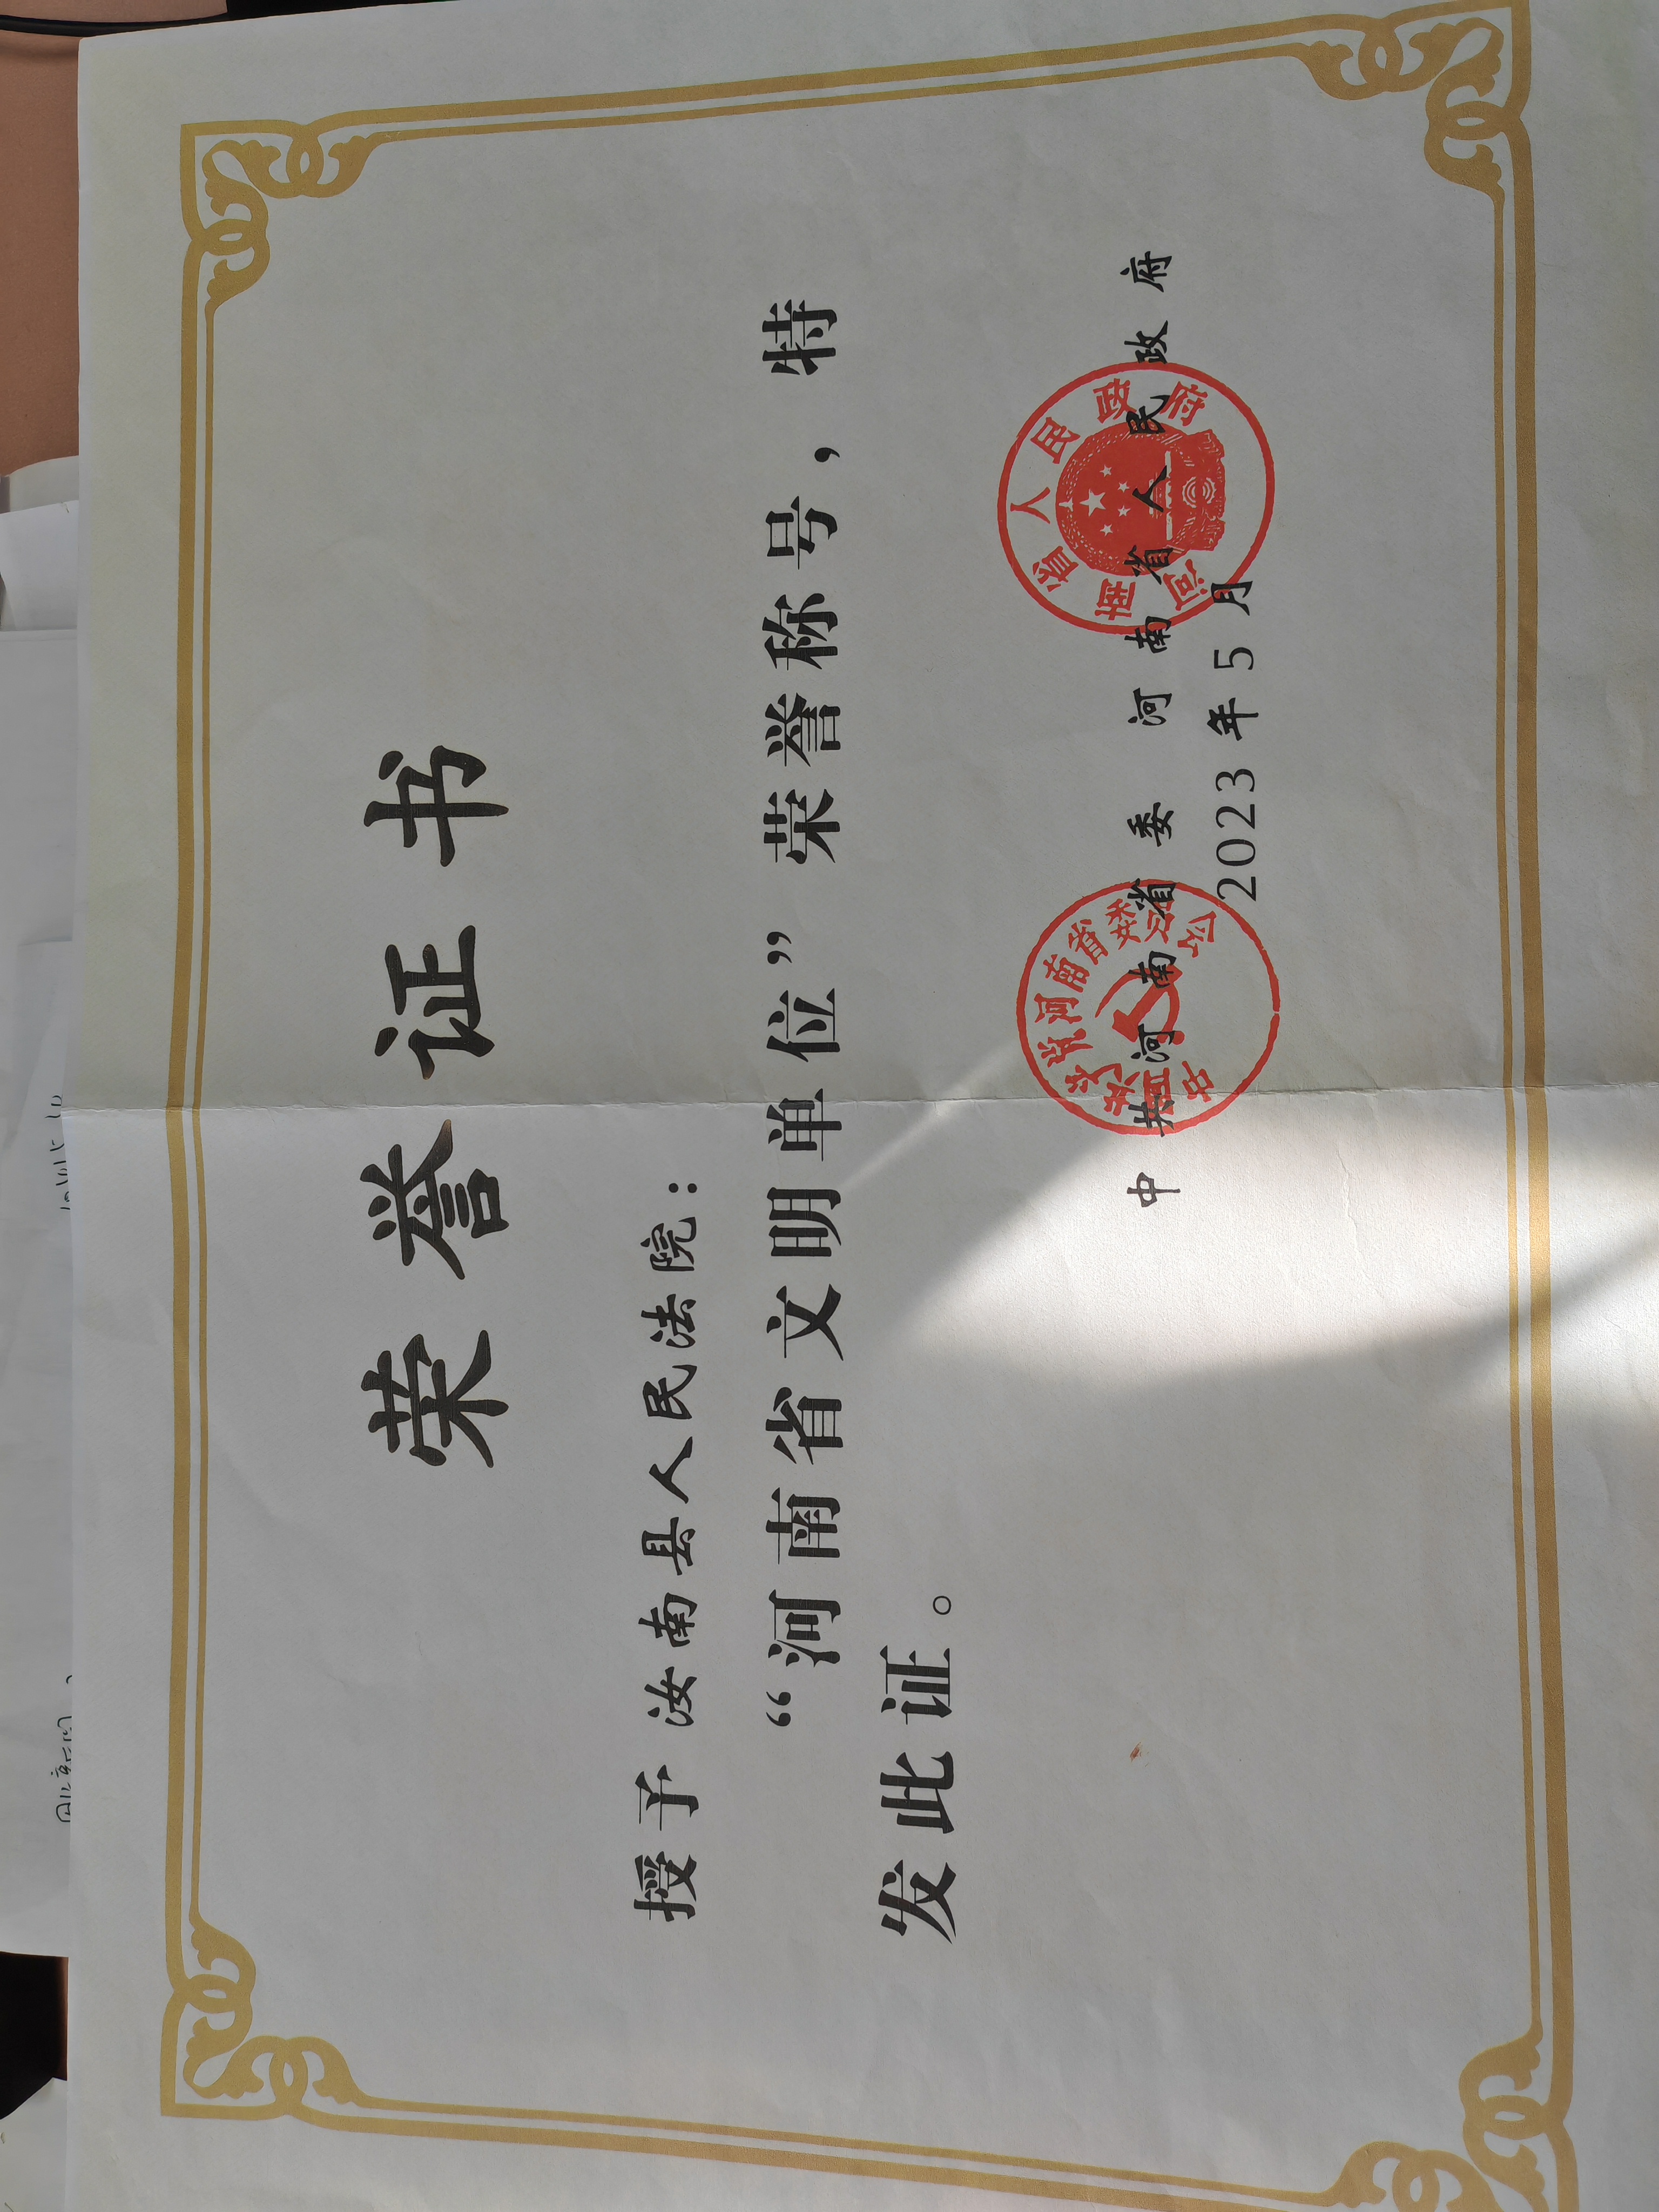 荣誉证书
授予 汝南县人民法院：
“河南省文明单位”荣誉称号，特
发此证。
中共河南省委 河南省人民政府
2023年5月
中国共产党河南省委员会
河南省人民政府